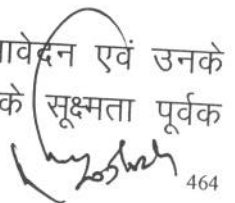 एवं उनके
के सूक्ष्मता पूर्वक
464